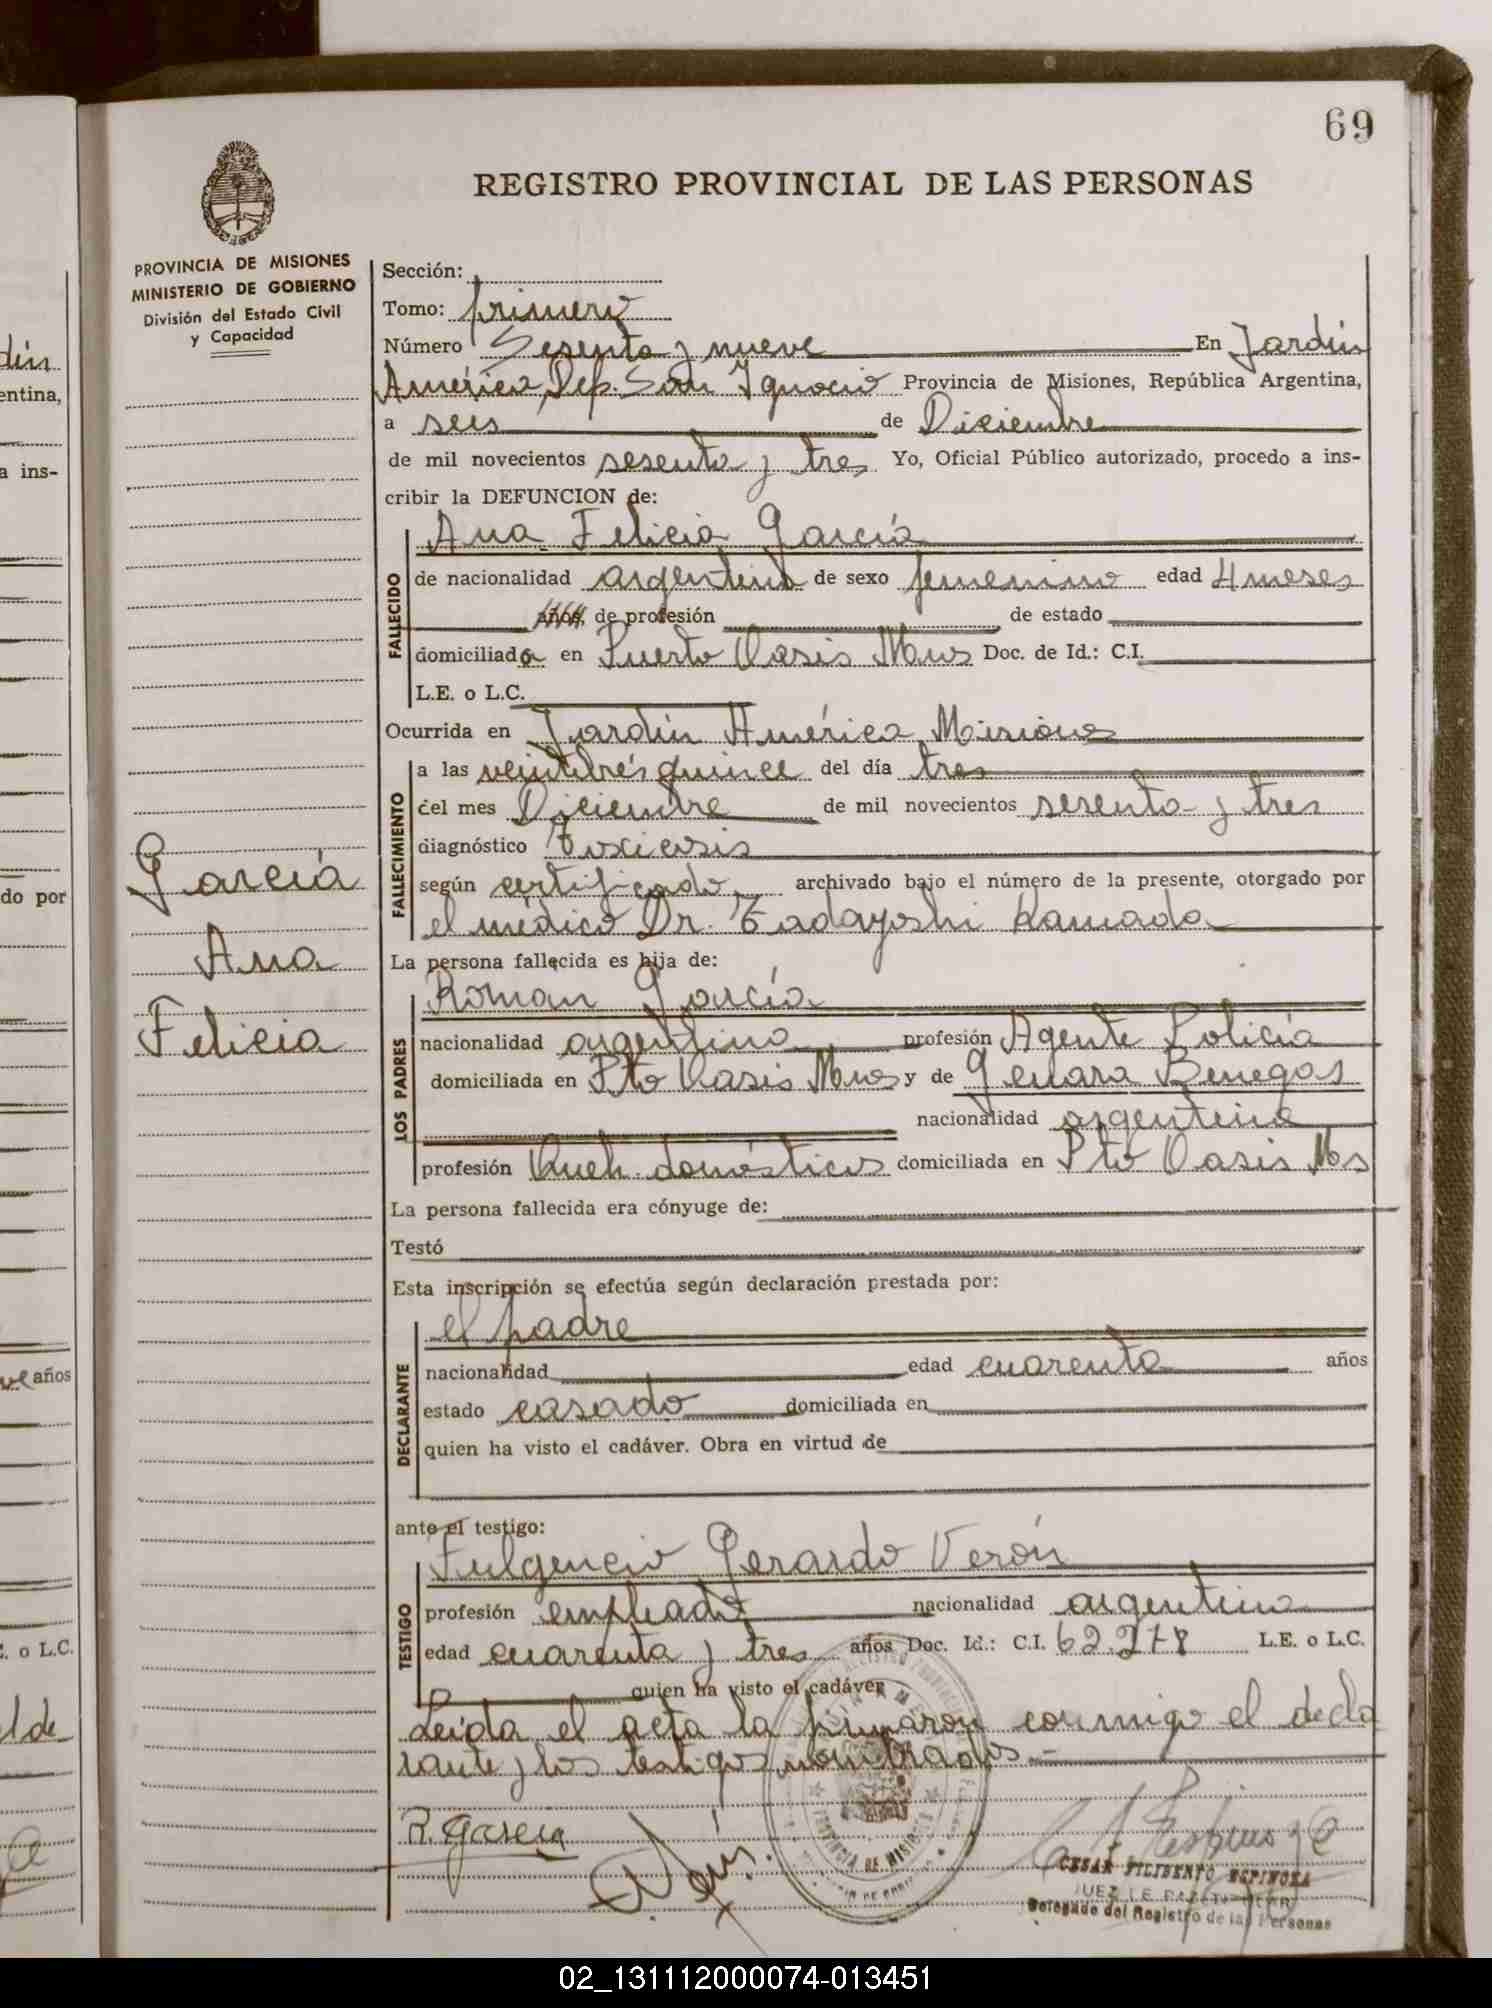 69
REGISTRO PROVINCIAL DE LAS PERSONAS
PROVINCIA DE MISIONES
MINISTERIO DE GOBIERNO
División del Estado Civil
y Capacidad
Sección:
Tomo: primero
Número Sesenta y nueve En Jardín
América Dep. San Ignacio Provincia de Misiones, República Argentina,
a seis de Diciembre
de mil novecientos sesenta y tres Yo, Oficial Público autorizado, procedo a ins-
cribir la DEFUNCION de:
Ana Felicia García
FALLECIDO
de nacionalidad argentina de sexo femenino edad 4 meses
años, de profesión de estado
domiciliada en Puerto Oasis Mnes Doc. de Id.: C.I.
L.E. o L.C.
Ocurrida en Jardín América Misiones
FALLECIMIENTO
a las veintitrés quince del día tres
del mes Diciembre de mil novecientos sesenta y tres
diagnóstico Toxicosis
según certificado archivado bajo el número de la presente, otorgado por
el médico Dr. Tadayoshi Kamada
García
Ana
Felicia
La persona fallecida es hija de:
LOS PADRES
Roman García
nacionalidad argentino profesión Agente Policía
domiciliada en Pto Oasis Mnes y de Genara Benegas
nacionalidad argentina
profesión Queh. domésticos domiciliada en Pto Oasis Ms
La persona fallecida era cónyuge de:
Testó
Esta inscripción se efectúa según declaración prestada por:
DECLARANTE
el padre
nacionalidad edad cuarenta años
estado casado domiciliada en
quien ha visto el cadáver. Obra en virtud de
ante el testigo:
TESTIGO
Fulgencio Gerardo Verón
profesión empleado nacionalidad argentino
edad cuarenta y tres años Doc. Id.: C.I. 62.278 L.E. o L.C.
quien ha visto el cadáver
Leida el acta la firmaron conmigo el decla
rante y los testigos nombrados.-
R. García
CESAR FILIBERTO ESPINOZA
JUEZ DE PAZ
Delegado del Registro de las Personas
dín
entina,
a ins-
do por
años
E. o L.C.
02_131112000074-013451